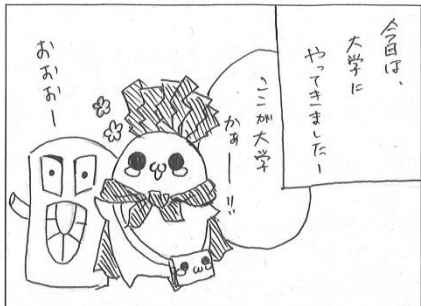 今日は、
大学に
やってきましたー
ここが大学
かぁーー!!
おおおー